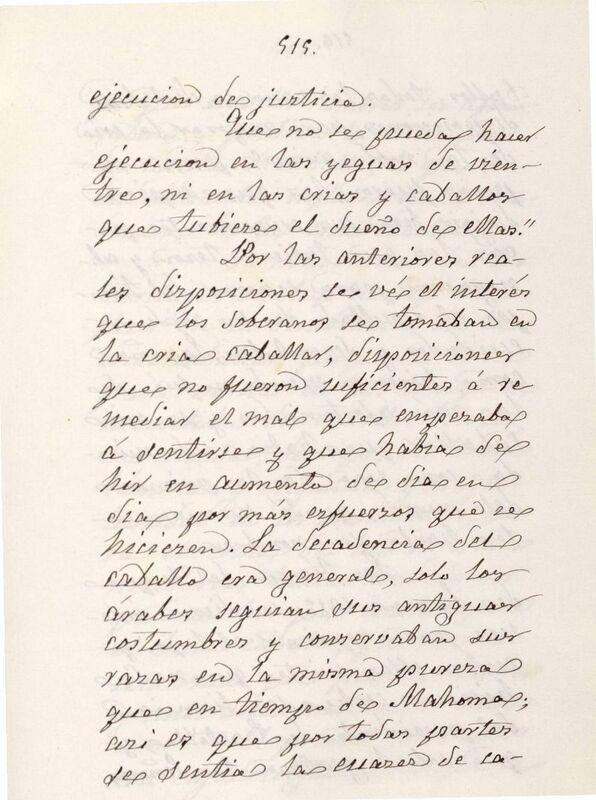 515.
ejecucion de justicia.
Que no se pueda hacer
ejecucion en las yeguas de vien-
tre, ni en las crias y caballos
que tubiere el dueño de ellas."
Por las anteriores rea-
les disposiciones se vé el interés
que los soberanos se tomaban en
la cria caballar, disposiciones
que no fueron suficientes á re
mediar el mal que empezaba
á sentirse y que habia de
hir en aumento de dia en
dia por más esfuerzos que se
hiciezen. La decadencia del
caballo era general, solo los
árabes seguian sus antiguas
costumbres y conservaban sus
razas en la misma pureza
que en tiempo de Mahoma;
asi es que por todas partes
se sentia la escases de ca-